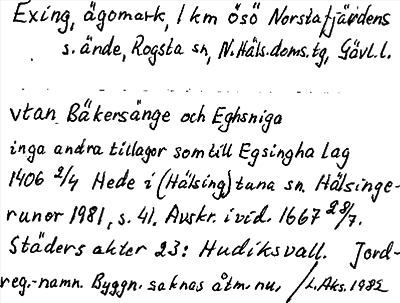 Exing, ägomark, 1 km ösö Norstafjärdens
s. ände, Rogsta sn, N. Häls. doms. tg, Gävl. l.
utan Bäkersänge och Eghsniga
inga andra tillagor som till Egsingha Lag
1406 2/4 Hede i (Hälsing)tuna sn. Hälsinge-
runor 1981, s. 41. Avskr. i vid. 1667 28/7.
Städers akter 23: Hudiksvall. Jord-
reg.-namn. Byggn. saknas åtm. nu. /L. Aks. 1982